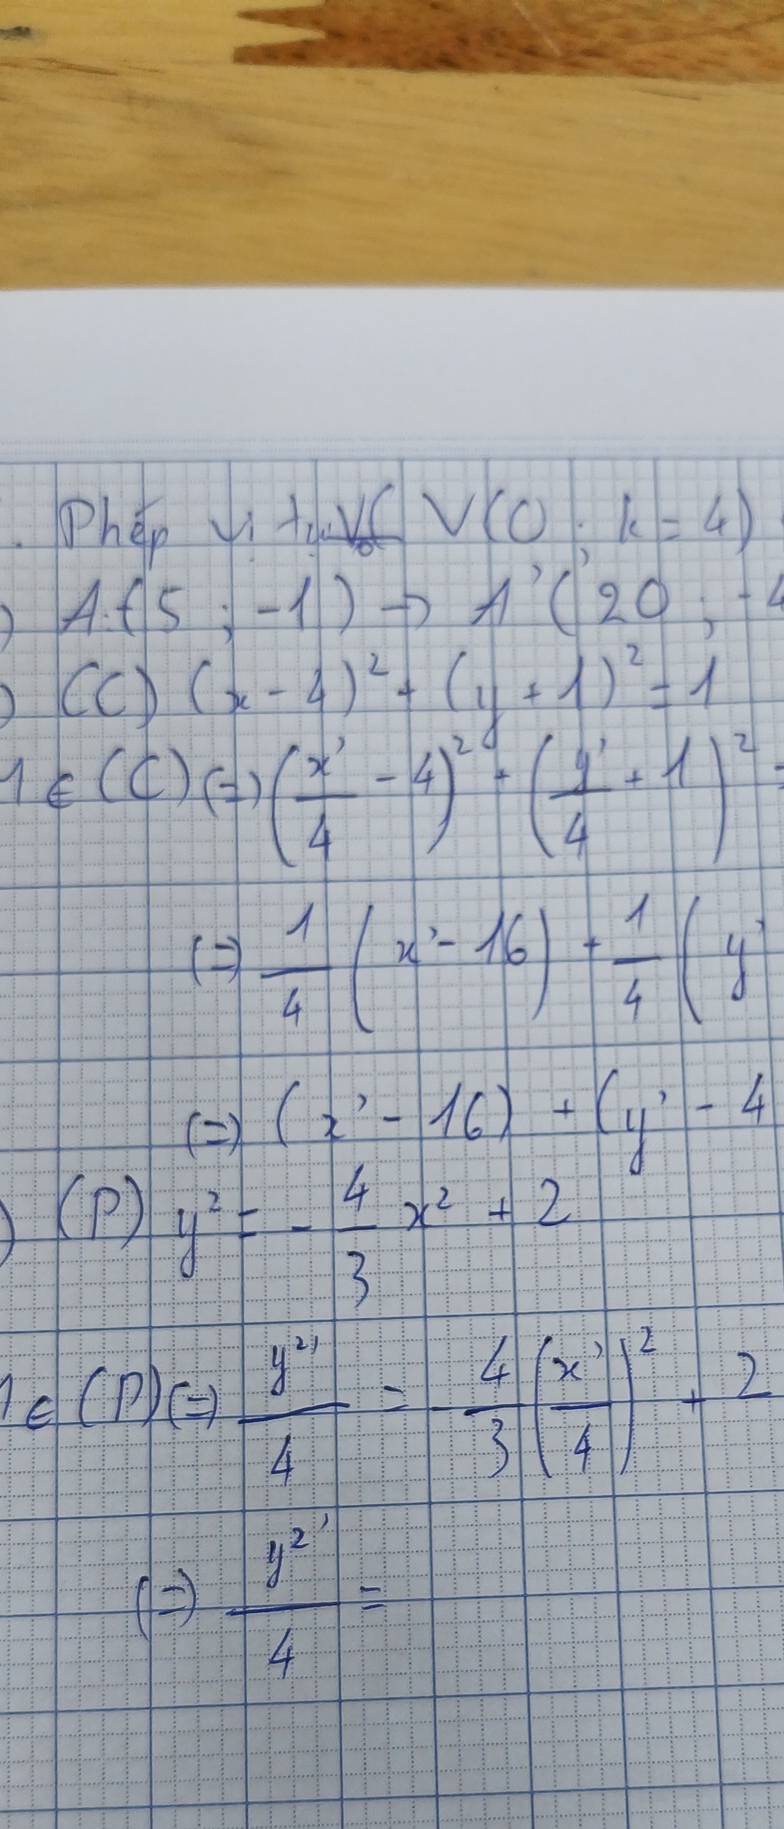 . Phép vị tự V( V(O; k = 4)
) A.(5 ; -1) → A'(20 ; -4
) (C) (x - 4)² + (y + 1)² = 1
∈ (C) (=) (x'/4 - 4)² + (y'/4 + 1)² =
(=) 1/4 (x' - 16) + 1/4 (y'
(=) (x' - 16) + (y' - 4
) (P) y² = - 4/3 x² + 2
∈ (P) (=) y²'/4 = - 4/3 (x'/4)² + 2
(=) y²'/4 =